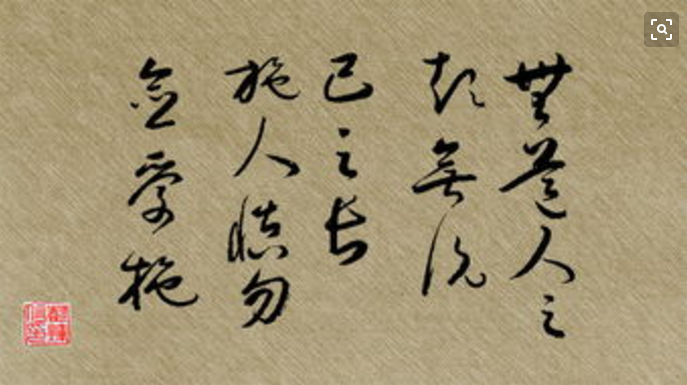 無道人之
短無説
己之長
施人慎勿
念受施